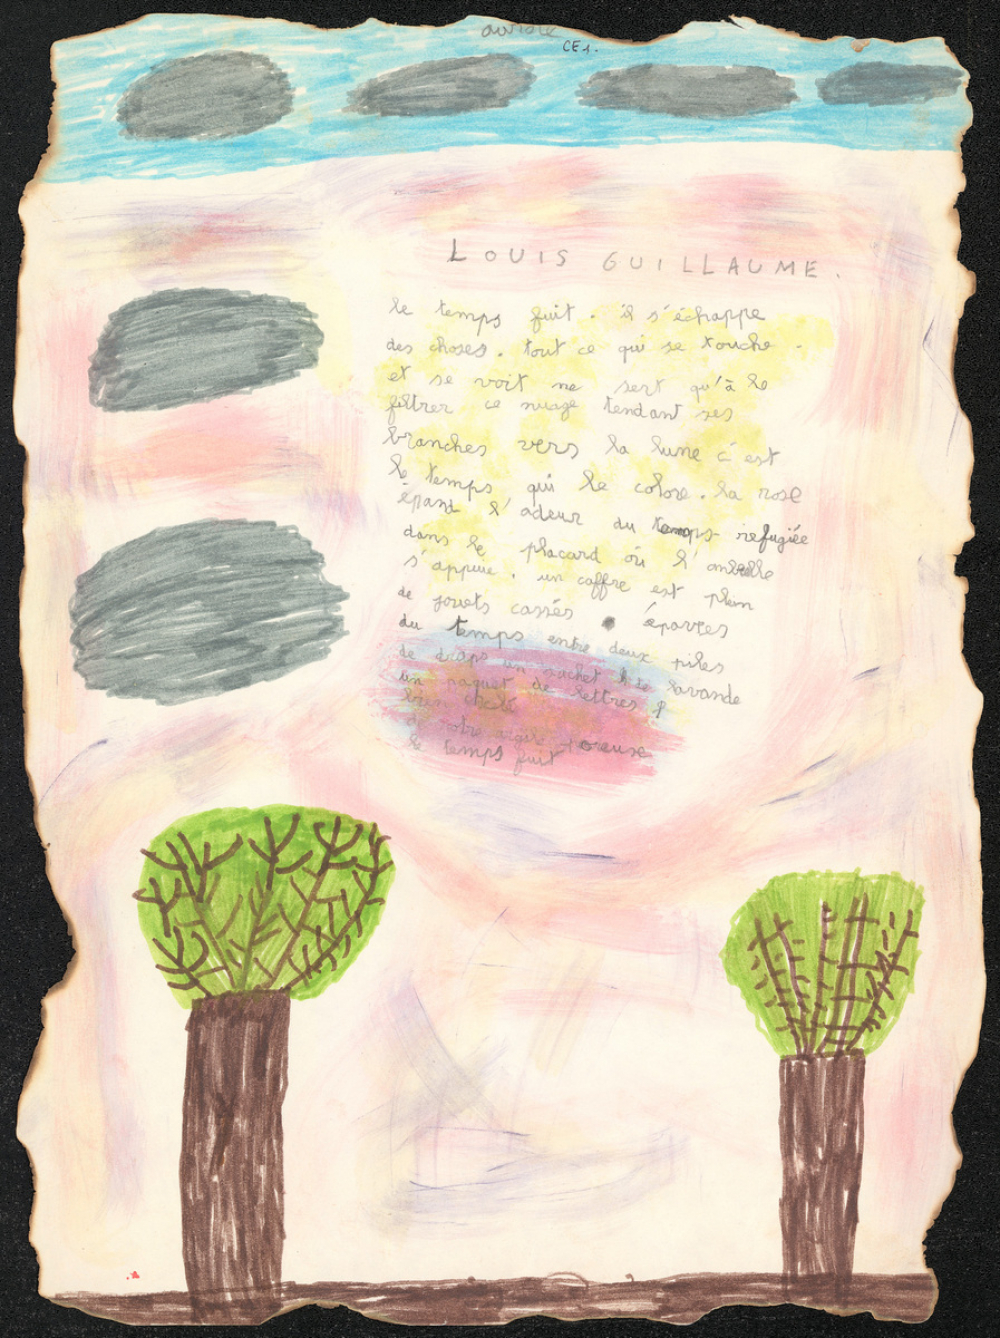 aurore
CE1.
LOUIS GUILLAUME.
le temps fuit. il s'échappe
des choses. tout ce qui se touche.
et se voit ne sert qu'à le
filtrer ce nuage tendant ses
branches vers la lune c'est
le temps qui le colore. la rose
épand l'adeur du temps refugiée
dans le placard où l'
s'appuie. un coffre est plein
de jouets cassés épaves
du temps entre deux piles
de draps un sachet de lavande
un paquet de lettres
le temps fuit